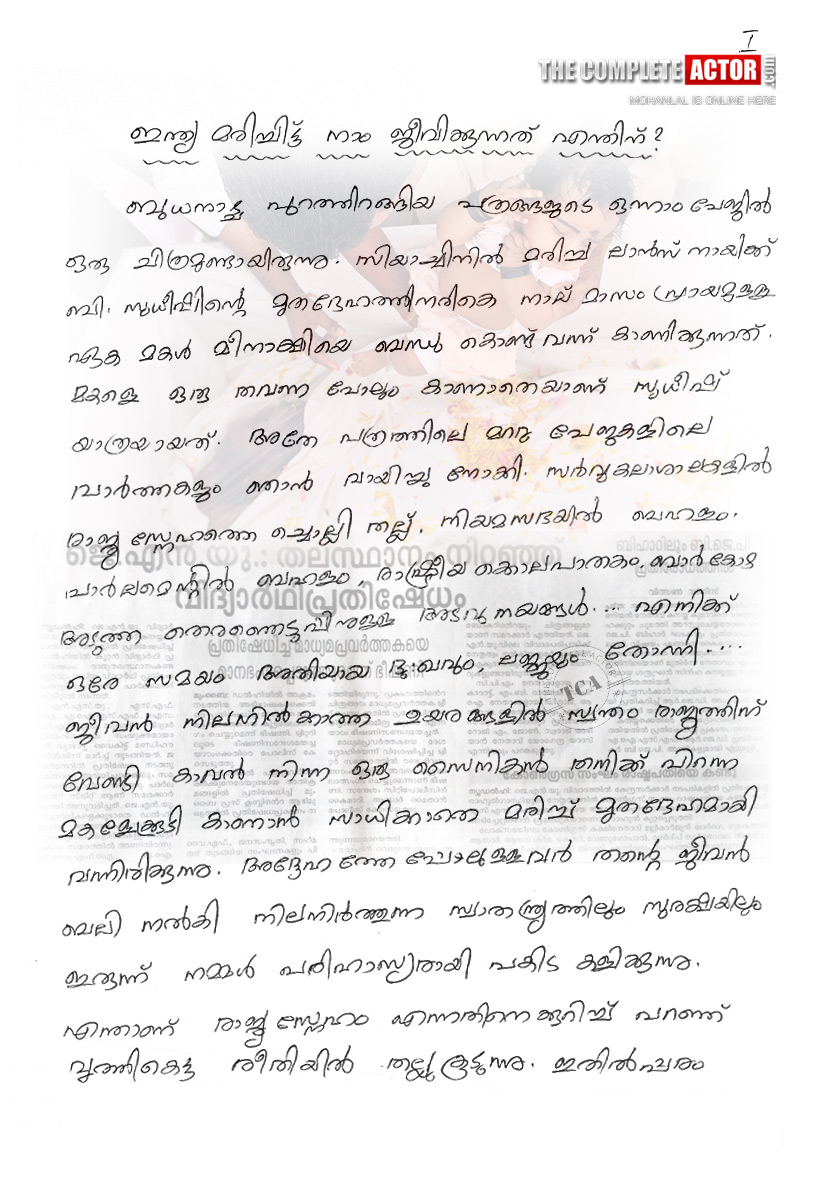 I
THE COMPLETE ACTOR .com
MOHANLAL IS ONLINE HERE
ഇന്ത്യ മരിച്ചിട്ട് നാം ജീവിക്കുന്നത് എന്തിന്?
ബുധനാഴ്ച പുറത്തിറങ്ങിയ പത്രങ്ങളുടെ ഒന്നാം പേജിൽ
ഒരു ചിത്രമുണ്ടായിരുന്നു. സിയാച്ചിനിൽ മരിച്ച ലാൻസ് നായിക്ക്
ബി. സുധീഷിന്റെ മൃതദേഹത്തിനരികെ നാല് മാസം പ്രായമുള്ള
ഏക മകൾ മീനാക്ഷിയെ ബന്ധു കൊണ്ട് വന്ന് കാണിക്കുന്നത്.
മകളെ ഒരു തവണ പോലും കാണാതെയാണ് സുധീഷ്
യാത്രയായത്. അതേ പത്രത്തിലെ മറ്റു പേജുകളിലെ
വാർത്തകളും ഞാൻ വായിച്ചു നോക്കി. സർവ്വകലാശാലകളിൽ
രാജ്യസ്നേഹത്തെ ചൊല്ലി തല്ല്, നിയമസഭയിൽ ബഹളം.
ജെ എൻ.യു.: തലസ്ഥാനം നിറഞ്ഞ്
ബിഹാറിലും ബി.ജെ.പി
പാർലമെന്റിൽ ബഹളം, രാഷ്ട്രീയ കൊലപാതകം, ബാർ കോഴ
വിദ്യാർഥിപ്രതിഷേധം
അടുത്ത തെരഞ്ഞെടുപ്പിനുള്ള അടവു നയങ്ങൾ... എനിക്ക്
പ്രതിഷേധിച്ച് മാധ്യമപ്രവർത്തകയെ
ഒരേ സമയം അതിയായ ദുഃഖവും, ലജ്ജയും തോന്നി....
TCA
ജീവൻ നിലനിൽകാത്ത ഉയരങ്ങളിൽ സ്വന്തം രാജ്യത്തിന്
വേണ്ടി കാവൽ നിന്ന ഒരു സൈനികൻ തനിക്ക് പിറന്ന
മകളെക്കൂടി കാണാൻ സാധിക്കാതെ മരിച്ച് മൃതദേഹമായി
വന്നിരിക്കുന്നു. അദ്ദേഹത്തേ പോലുള്ളവർ തന്റെ ജീവൻ
ബലി നൽകി നിലനിർത്തുന്ന സ്വാതന്ത്ര്യത്തിലും സുരക്ഷയിലും
ഇരുന്ന് നമ്മൾ പരിഹാസ്യരായി പകിട കളിക്കുന്നു.
എന്താണ് രാജ്യസ്നേഹം എന്നതിനെക്കുറിച്ച് പറഞ്ഞ്
വൃത്തികെട്ട രീതിയിൽ തല്ലുകൂടുന്നു. ഇതിൽപ്പരം